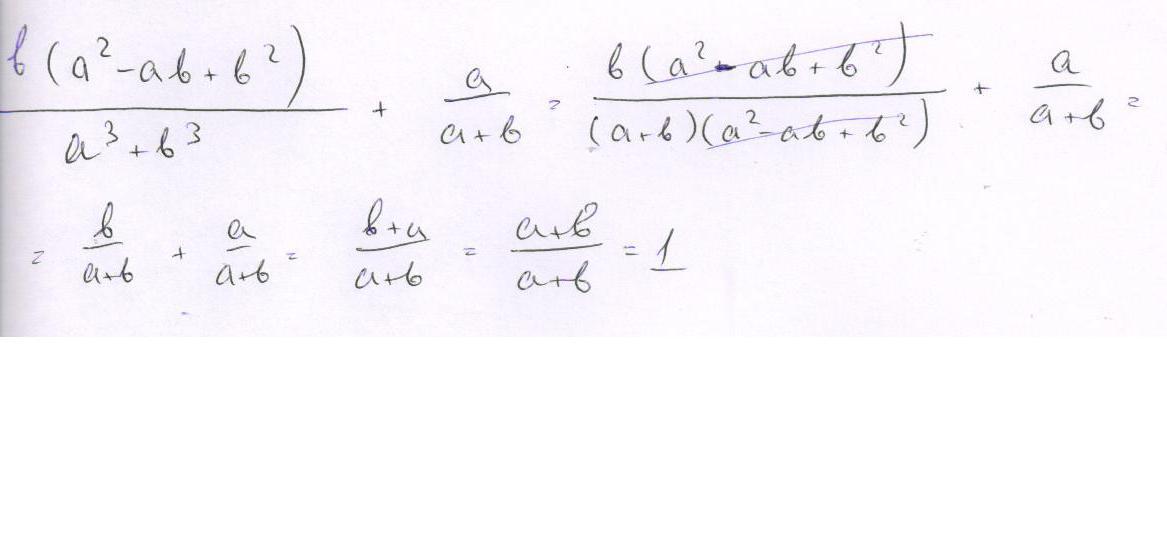 b(a²-ab+b²)/(a³+b³) + a/(a+b) = b(a²-ab+b²)/((a+b)(a²-ab+b²)) + a/(a+b) =
= b/(a+b) + a/(a+b) = (b+a)/(a+b) = (a+b)/(a+b) = 1